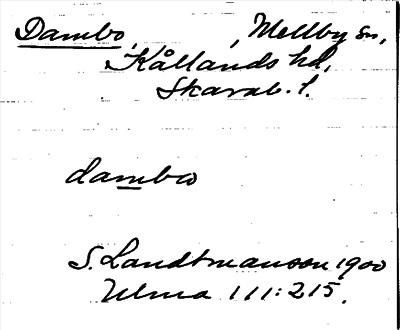 Dambo, , Mellby sn,
Kållands hd,
Skarab. l.
dambω
S. Landtmanson 1900
Ulma 111:215.